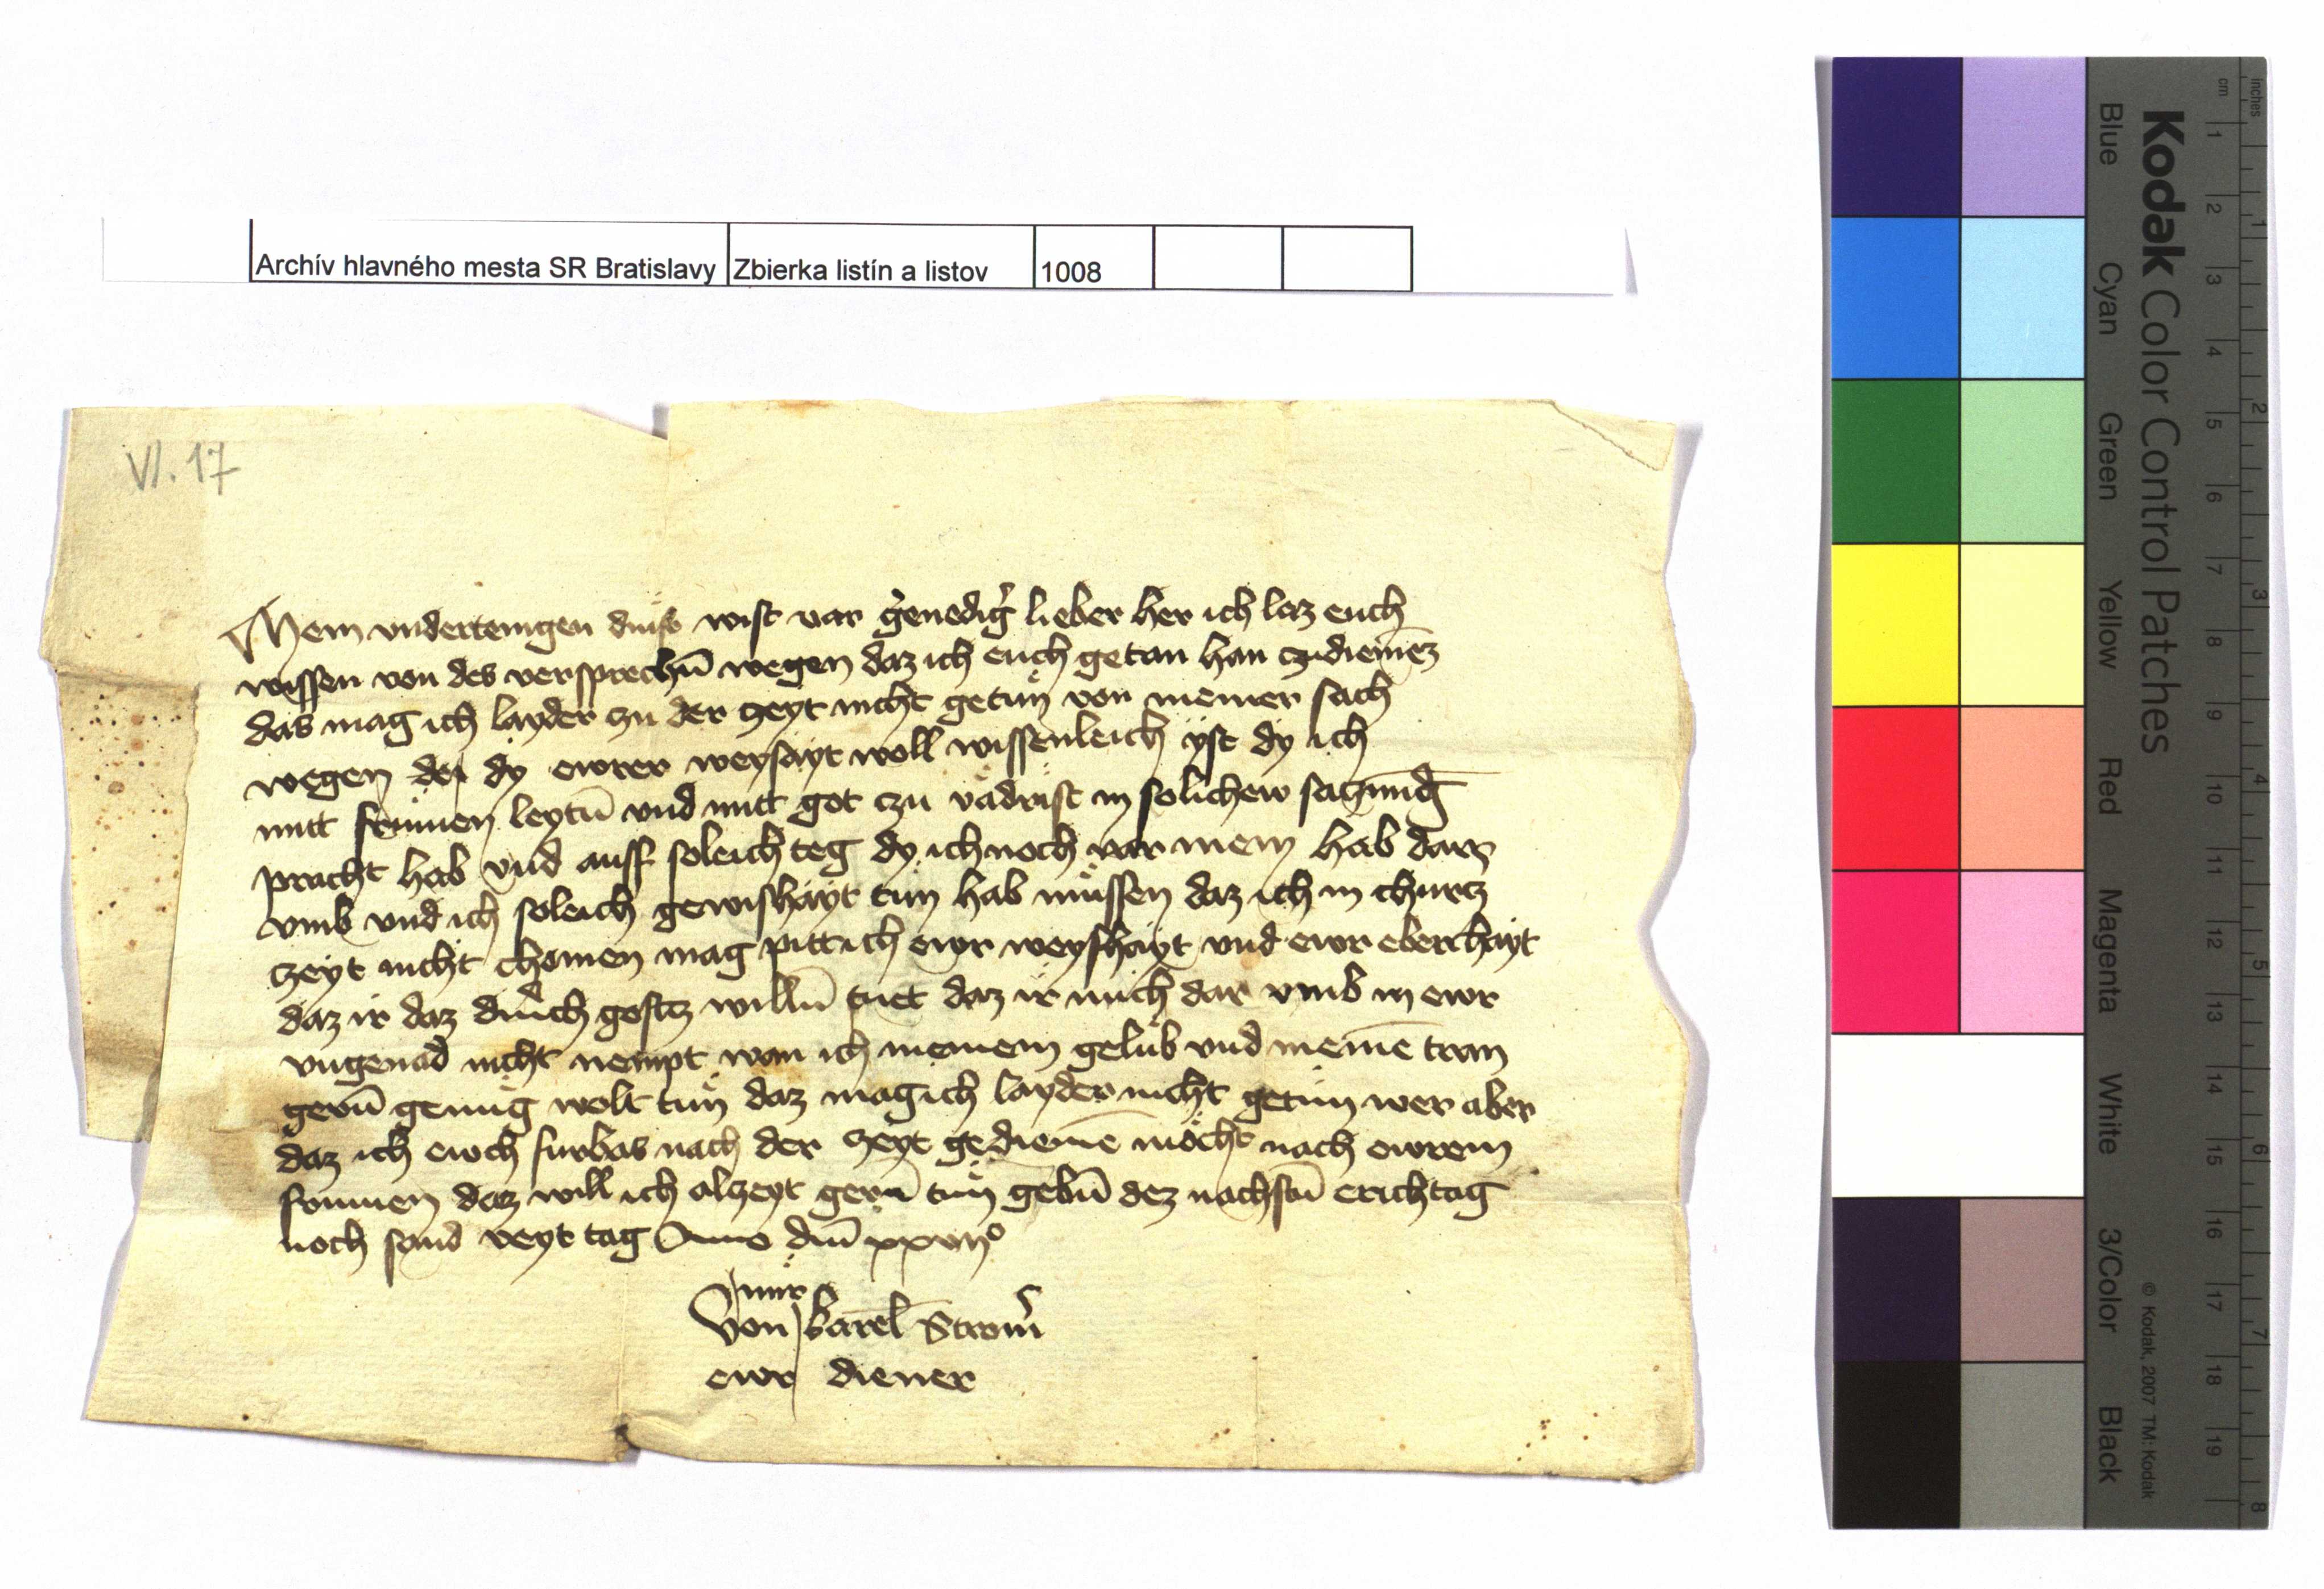 Archív hlavného mesta SR Bratislavy Zbierka listín a listov 1008
VI. 17
Mein vndertenigen dinst wist var genedig' lieber her ich laz euch
wissen von des versprechn̄ wegen daz ich euch getan han czudienen̄
das mag ich layder czu der czeyt nicht getun von meiner sach
wegen der dy ewrer weyshayt woll wissenleich yst dy ich
mitt frumen leytn̄ vnd mitt got czu vadrist in solichew saczung
pracht hab vnd auff soleich teg dy ich noch var mein hab darz
vmb vnd ich soleich gewishayt tun hab mussen daz ich in churcz
czeyt nicht chomen mag pitt ich ewr weyshayt vnd ewr eberchayt
daz ir daz durch gotcz willn̄ tuet daz ir mich dar vmb in ewr
vngenad nicht nempt wan ich meinem gelub vnd meinē tran
gern̄ genug wolt tun daz mag ich layder nicht getun wer aber
daz ich ewch furbas nach der czeyt gedienē mocht nach ewrem
frumen daz will ich alczeyt gern̄ tun gebn̄ dez nachstn̄ erichtag
noch sand veyt tag Anno dm̄ xxvıı°
von mir karel Strom'
ewr diener
Kodak Color Control Patches
Blue Cyan Green Yellow Red Magenta White 3/Color Black
© Kodak, 2007 TM: Kodak
inches 1 2 3 4 5 6 7 8
cm 1 2 3 4 5 6 7 8 9 10 11 12 13 14 15 16 17 18 19